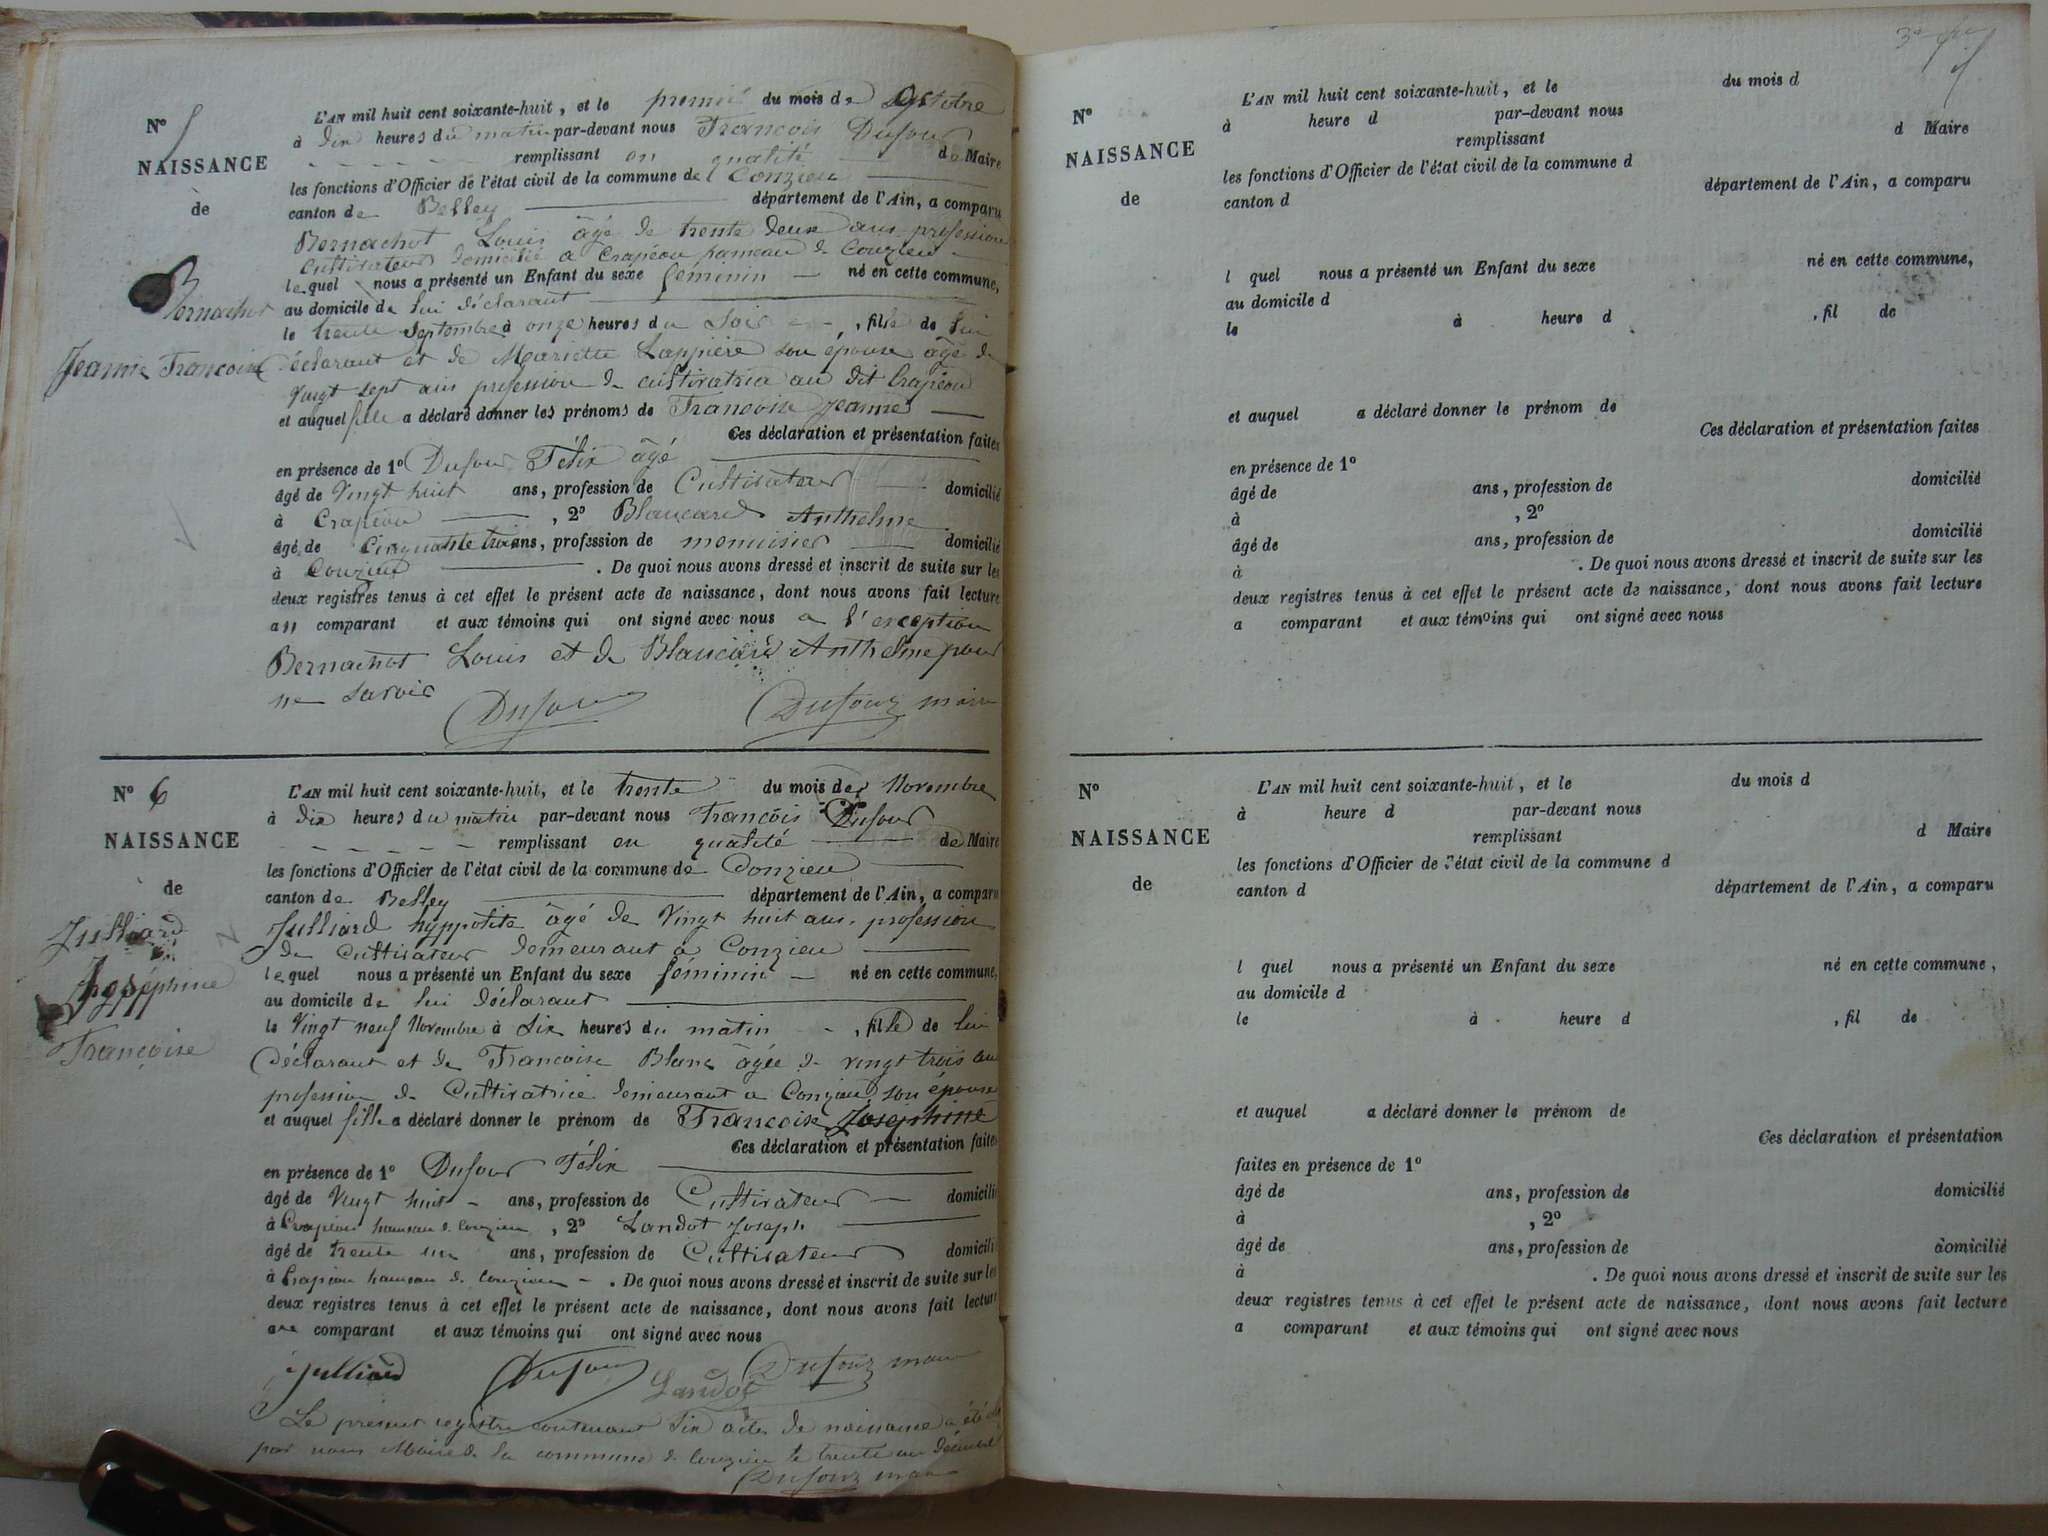 N° 5
NAISSANCE
de
Bernachot
Jeanne Francoise
L'AN mil huit cent soixante-huit, et le premier du mois de Octobre
à dix heures du matin par-devant nous François Dufour
remplissant en qualité de Maire
les fonctions d'Officier de l'état civil de la commune de Conzieu
canton de Belley département de l'Ain, a comparu
Bernachot Louis âgé de trente deux ans profession
cultivateur domicilié a Crapéou hameau de Conzieu
lequel nous a présenté un Enfant du sexe féminin né en cette commune,
au domicile de lui déclarant
le trente Septembre à onze heures du Soir, fille de lui
déclarant et de Mariette Lappière son épouse âgé de
vingt sept ans profession de cultivatrice au dit Crapéou
et auquel fille a déclaré donner les prénoms de Francoise Jeanne
Ces déclaration et présentation faites
en présence de 1° Dufour Félix âgé
âgé de vingt huit ans, profession de Cultivateur domicilié
à Crapéou, 2° Blancard Anthelme
âgé de Cinquante trois ans, profession de menuisier domicilié
à Conzieu. De quoi nous avons dressé et inscrit de suite sur les
deux registres tenus à cet effet le présent acte de naissance, dont nous avons fait lecture
au comparant et aux témoins qui ont signé avec nous a l'exception
Bernachot Louis et de Blancard Anthelme pour
ne savoir
Dufour Dufour maire
N° 6
NAISSANCE
de
Julliard
Joséphine
Françoise
L'AN mil huit cent soixante-huit, et le trente du mois de Novembre
à dix heures du matin par-devant nous François Dufour
remplissant en qualité de Maire
les fonctions d'Officier de l'état civil de la commune de Conzieu
canton de Belley département de l'Ain, a comparu
Julliard hyppolite âgé de Vingt huit ans, profession
de Cultivateur demeurant a Conzieu
lequel nous a présenté un Enfant du sexe féminin né en cette commune,
au domicile de lui déclarant
le Vingt neuf Novembre à Six heures du matin, fille de lui
Déclarant et de Francoise Blanc âgée de vingt trois an
profession de Cultivatrice demeurant a Conzieu son épouse
et auquel fille a déclaré donner le prénom de Francoise Josephine
Ces déclaration et présentation faites
en présence de 1° Dufour Félix
âgé de Vingt huit ans, profession de Cultivateur domicilié
à Crapéou hameau de Conzieu, 2° Landot Joseph
âgé de trente un ans, profession de Cultivateur domicilié
à Crapéou hameau de Conzieu. De quoi nous avons dressé et inscrit de suite sur les
deux registres tenus à cet effet le présent acte de naissance, dont nous avons fait lecture
au comparant et aux témoins qui ont signé avec nous
Julliard Dufour Landot Dufour maire
Le présent registre contenant Six actes de naissance a été clos
par nous Maire de la commune de Conzieu le trente un Décembre
Dufour maire
N°
NAISSANCE
de
L'AN mil huit cent soixante-huit, et le du mois d
à heure d par-devant nous
remplissant d Maire
les fonctions d'Officier de l'état civil de la commune d
canton d département de l'Ain, a comparu
l quel nous a présenté un Enfant du sexe né en cette commune,
au domicile d
le à heure d , fil de
et auquel a déclaré donner le prénom de
Ces déclaration et présentation faites
en présence de 1°
âgé de ans, profession de domicilié
à , 2°
âgé de ans, profession de domicilié
à . De quoi nous avons dressé et inscrit de suite sur les
deux registres tenus à cet effet le présent acte de naissance, dont nous avons fait lecture
a comparant et aux témoins qui ont signé avec nous
N°
NAISSANCE
de
L'AN mil huit cent soixante-huit, et le du mois d
à heure d par-devant nous
remplissant d Maire
les fonctions d'Officier de l'état civil de la commune d
canton d département de l'Ain, a comparu
l quel nous a présenté un Enfant du sexe né en cette commune,
au domicile d
le à heure d , fil de
et auquel a déclaré donner le prénom de
Ces déclaration et présentation
faites en présence de 1°
âgé de ans, profession de domicilié
à , 2°
âgé de ans, profession de domicilié
à . De quoi nous avons dressé et inscrit de suite sur les
deux registres tenus à cet effet le présent acte de naissance, dont nous avons fait lecture
a comparant et aux témoins qui ont signé avec nous